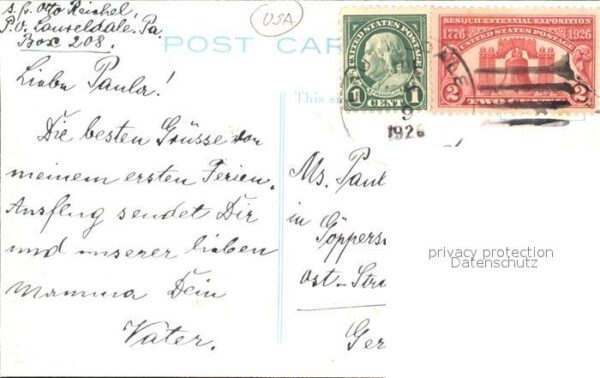 s. f. Otto Reichel,
P.O. Laureldale, Pa.
Box 208.
USA
POST CAR
UNITED STATES POSTAGE
FRANKLIN
1 CENT 1
SESQUICENTENNIAL EXPOSITION
1776 1926
UNITED STATES POSTAGE
2 TWO CENTS 2
DALE
9
1926
This s
Liebe Paula!
Die besten Grüsse von
meinem ersten Ferien-
Ausflug sendet Dir
und unserer lieben
Mamma Dein
Vater.
Ms. Paul
in Göppers
Ost-Stra
Ger
privacy protection
Datenschutz